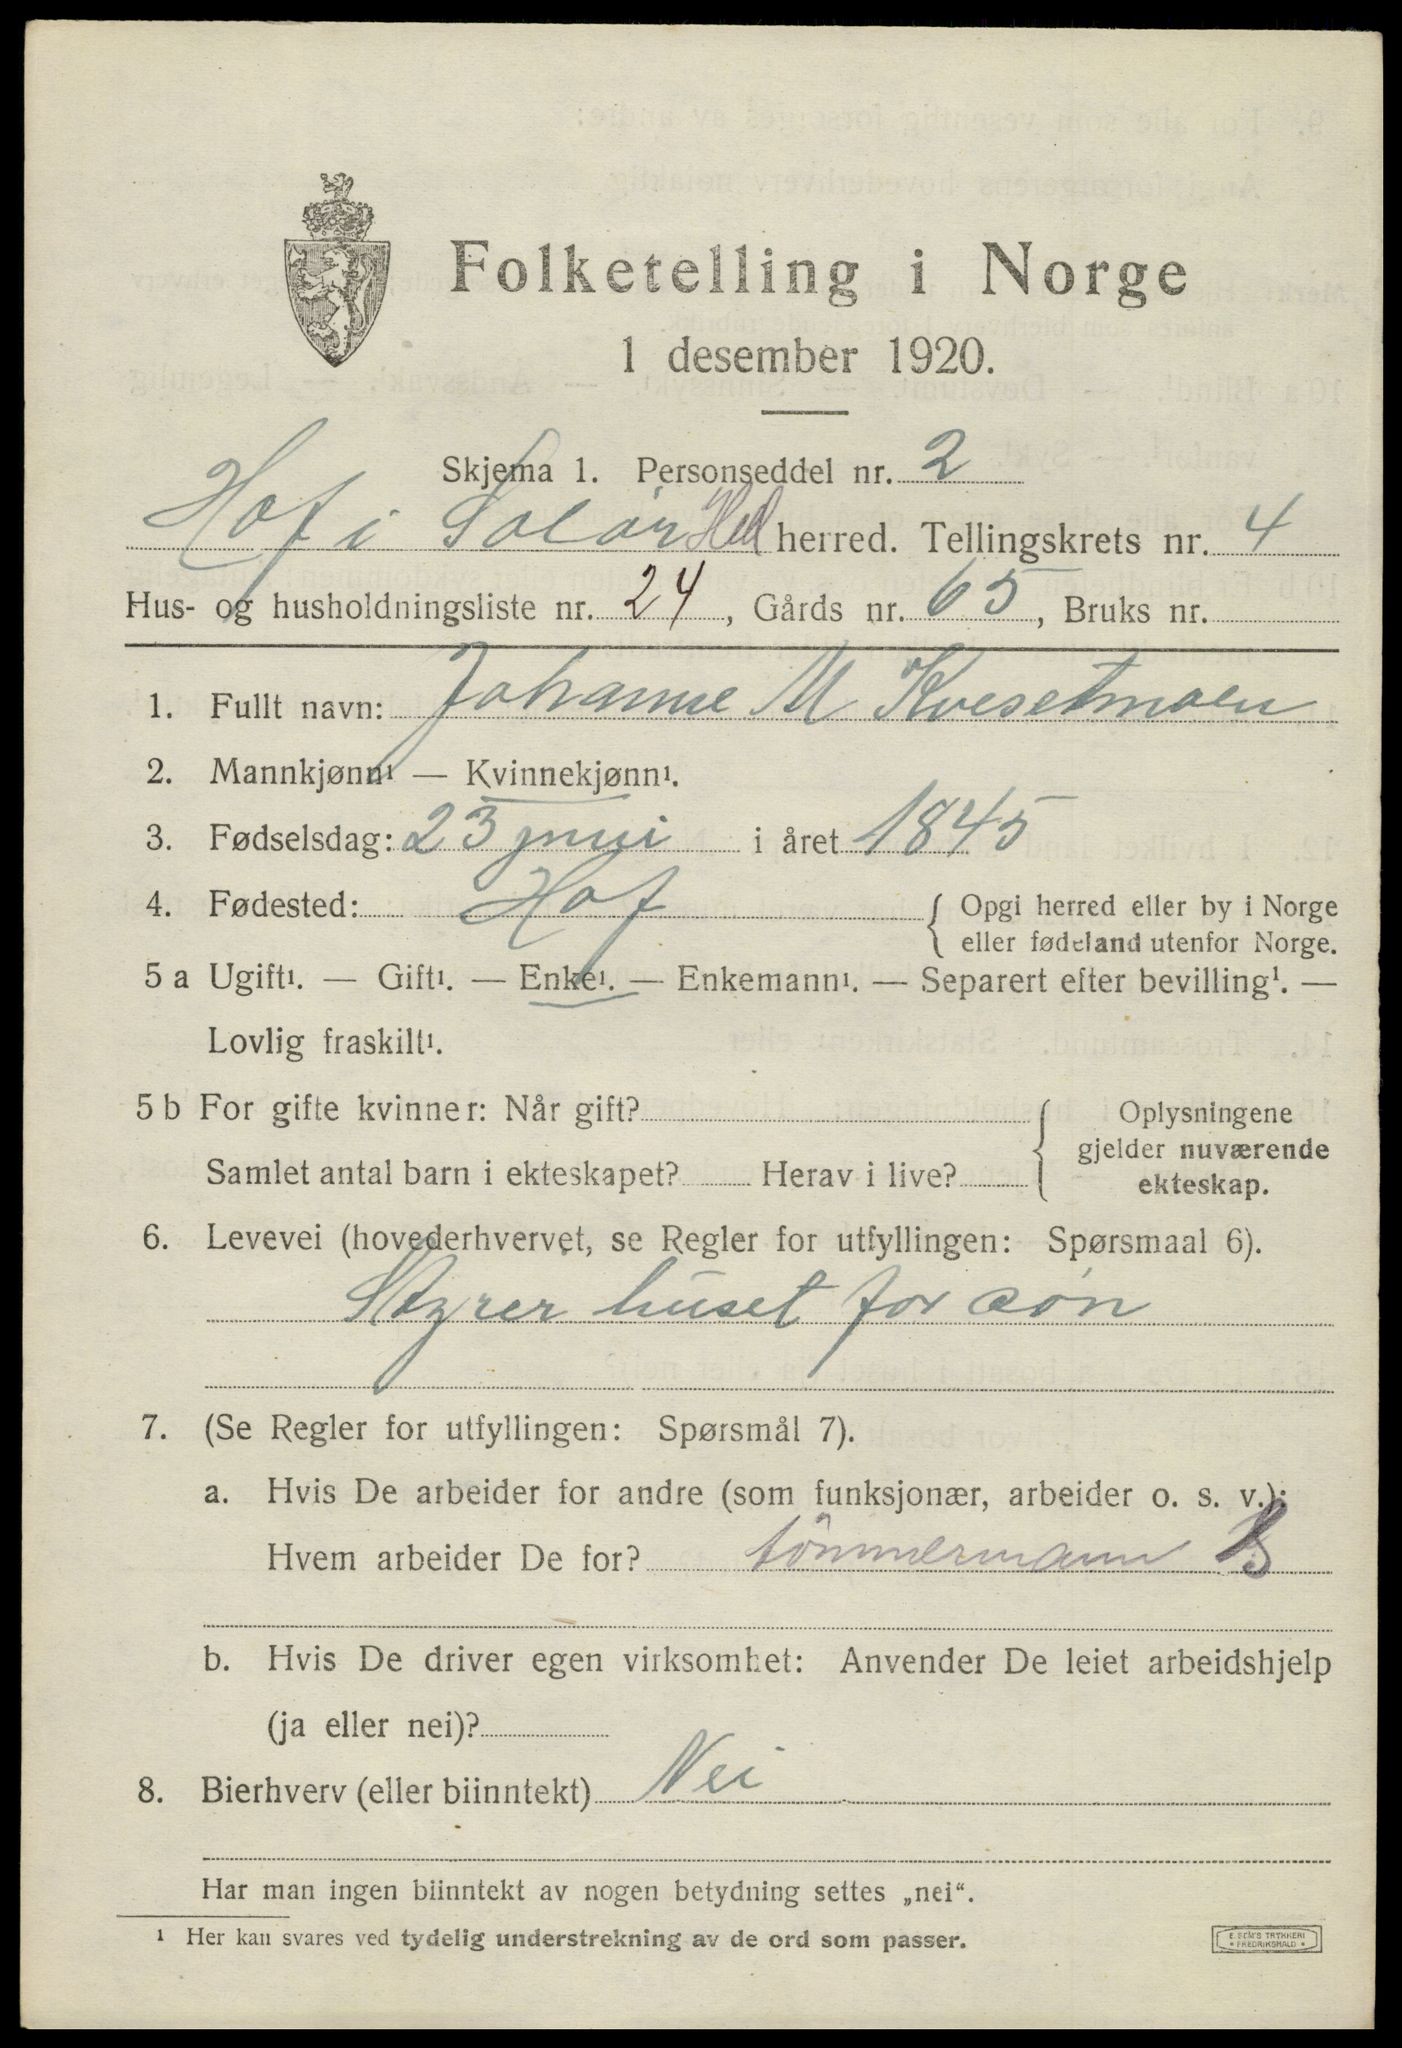 Folketelling i Norge
1 desember 1920.
Skjema 1. Personseddel nr. 2
Hof i Solør Hed herred. Tellingskrets nr. 4
Hus- og husholdningsliste nr. 24, Gårds nr. 65, Bruks nr.
1. Fullt navn: Johanne M Kvesetmoen
2. Mannkjønn¹ — Kvinnekjønn¹.
3. Fødselsdag: 23 juni i året 1845
4. Fødested: Hof { Opgi herred eller by i Norge
eller fødeland utenfor Norge.
5 a Ugift¹. — Gift¹. — Enke¹. — Enkemann¹. — Separert efter bevilling¹. —
Lovlig fraskilt¹.
5 b For gifte kvinner: Når gift? { Oplysningene
gjelder nuværende
Samlet antal barn i ekteskapet? Herav i live? ekteskap.
6. Levevei (hovederhvervet, se Regler for utfyllingen: Spørsmaal 6).
Styrer huset for søn
7. (Se Regler for utfyllingen: Spørsmål 7).
a. Hvis De arbeider for andre (som funksjonær, arbeider o. s. v.):
Hvem arbeider De for? tömmermann B
b. Hvis De driver egen virksomhet: Anvender De leiet arbeidshjelp
(ja eller nei)?
8. Bierhverv (eller biinntekt) Nei
Har man ingen biinntekt av nogen betydning settes „nei“.
¹ Her kan svares ved tydelig understrekning av de ord som passer.
E. SEM'S TRYKKERI
* FREDRIKSHALD *